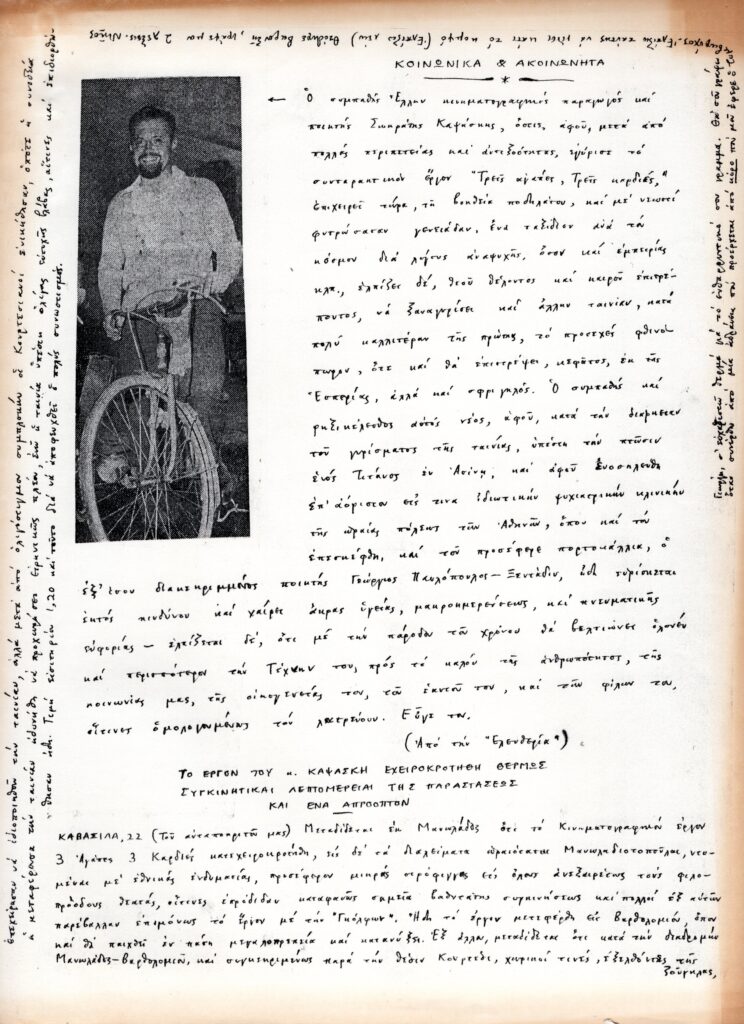 ΚΟΙΝΩΝΙΚΑ & ΑΚΟΙΝΩΝΗΤΑ
Ὁ συμπαθὴς Ἕλλην κινηματογραφικὸς παραγωγὸς καὶ
ποιητὴς Σωκράτης Καψάσκης, ὅστις, ἀφοῦ, μετὰ ἀπὸ
πολλὰς περιπετείας καὶ ἀντιξοότητας, ἐγύρισε τὸ
συνταρακτικὸν ἔργον "Τρεῖς ἀγάπες, Τρεῖς καρδιές,"
ἐπιχειρεῖ τώρα, τῇ βοηθείᾳ ποδηλάτου, καὶ μὲ νεωστὶ
φυτρώσασαν γενειάδαν, ἕνα ταξίδιον ἀνὰ τὸν
κόσμον διὰ λόγους ἀναψυχῆς, ὅσον καὶ ἐμπειρίας
κλπ., ἐλπίζει δέ, θεοῦ θέλοντος καὶ καιροῦ ἐπιτρέ-
ποντος, νὰ ξαναγυρίσει καὶ ἄλλην ταινίαν, κατὰ
πολὺ καλλιτέραν τῆς πρώτης, τὸ προσεχὲς φθινό-
πωρον, ὅτε καὶ θὰ ἐπιστρέψει, κεφᾶτος, ἐκ τῆς
Ἑσπερίας, ἀλλὰ καὶ σφριγηλός. Ὁ συμπαθὴς καὶ
ριξικέλευθος αὐτὸς νέος, ἀφοῦ, κατὰ τὴν διάρκειαν
τοῦ γυρίσματος τῆς ταινίας, ὑπέστη τὴν πτῶσιν
ἑνὸς Τιτᾶνος ἐν Ἀσίνῃ, καὶ ἀφοῦ ἐνοσηλεύθη
ἐπ' ἀόριστον εἰς τινα ἰδιωτικὴν ψυχιατρικὴν κλινικὴν
τῆς ὡραίας πόλεως τῶν Ἀθηνῶν, ὅπου καὶ τὸν
ἐπεσκέφθη, καὶ τοῦ προσέφερε πορτοκάλλια, ὁ
ἐξ' ἴσου διακεκριμμένος ποιητὴς Γεώργιος Παυλόπουλος – εὑρίσκεται
ἐκτὸς κινδύνου καὶ χαίρει ἄκρας ὑγείας, μακροημερεύσεως, καὶ πνευματικῆς
εὐφορίας – ἐλπίζεται δέ, ὅτι μὲ τὴν πάροδον τοῦ χρόνου θὰ βελτιώνει ὁλονὲν
καὶ περισσότερον τὴν Τέχνην του, πρὸς τὸ καλὸν τῆς ἀνθρωπότητος, τῆς
κοινωνίας μας, τῆς οἰκογενείας του, τοῦ ἑαυτοῦ του, καὶ τῶν φίλων του,
οἵτινες ὁμολογουμένως τὸν λατρεύουν. Εὖγε του.
(Ἀπὸ τὴν "Ἐλευθερία")
ΤΟ ΕΡΓΟΝ ΤΟΥ κ. ΚΑΨΑΣΚΗ ΕΧΕΙΡΟΚΡΟΤΗΘΗ ΘΕΡΜΩΣ
ΣΥΓΚΙΝΗΤΙΚΑΙ ΛΕΠΟΜΕΡΕΙΑΙ ΤΗΣ ΠΑΡΑΣΤΑΣΕΩΣ
ΚΑΙ ΕΝΑ ΑΠΡΟΟΠΤΟΝ
ΚΑΒΑΣΙΛΑ, 22 (Τοῦ ἀνταποκριτοῦ μας) Μεταδίδεται ἐκ Μανωλάδος ὅτι τὸ Κινηματογραφικὸν ἔργον
3 Ἀγάπες 3 Καρδιὲς κατεχειροκροτήθη, εἰς δὲ τὰ διαλείματα ὡραιόταται Μανωλαδιοτοποῦλαι, ντυ-
μέναι μὲ ἐθνικὰς ἐνδυμασίας, προσέφερον μικρὰς εἰς ὅλους ἀνεξαιρέτως τοὺς φιλο-
προόδους θεατάς, οἵτινες ἐπέδιδαν καταφανῶς σημεῖα βαθυτάτης συγκινήσεως καὶ πολλοὶ ἐξ αὐτῶν
παρέβαλλαν ἐπιμόνως τὸ ἔργον μὲ τὴν "Γκόλφω". Ἤδη τὸ ἔργον μετεφέρθη εἰς Βαρθολομιόν, ὅπου
καὶ θὰ παιχθεῖ ἐν πάσῃ μεγαλοπρεπείᾳ καὶ κατανύξει. Ἐξ ἄλλου, μεταδίδεται ὅτι κατὰ τὴν διαδρομὴν
Μανωλάδος–Βαρθολομιοῦ, καὶ συγκεκριμένως παρὰ τὴν θέσιν Κουρτέσι, χωρικοί τινές, ἐξελθόντες τῆς
ζούγκλας,
ἐπεχείρησαν νὰ ἰδιοποιηθοῦν τὴν ταινίαν, ἀλλὰ μετὰ ἀπὸ ὀλιγόωρον συμπλοκὴν οἱ Κουρτεσιανοὶ ἐνικήθησαν, ὁπότε ἡ συνοδεία
ἡ μεταφέρουσα τὴν ταινίαν ἠδυνήθη νὰ προχωρήσει εἰρηνικῶς πλέον, ἐνῶ ἡ ταινία ὑπέστη ὀλίγας εὐτυχῶς βλάβας, αἵτινες καὶ ἐπιδιορθώ-
θησαν ἤδη. Τιμὴ εἰσιτηρίου 1,20 καὶ τοῦτο διὰ νὰ ἀποφευχθεῖ ὁ πολὺς συνωστισμός.